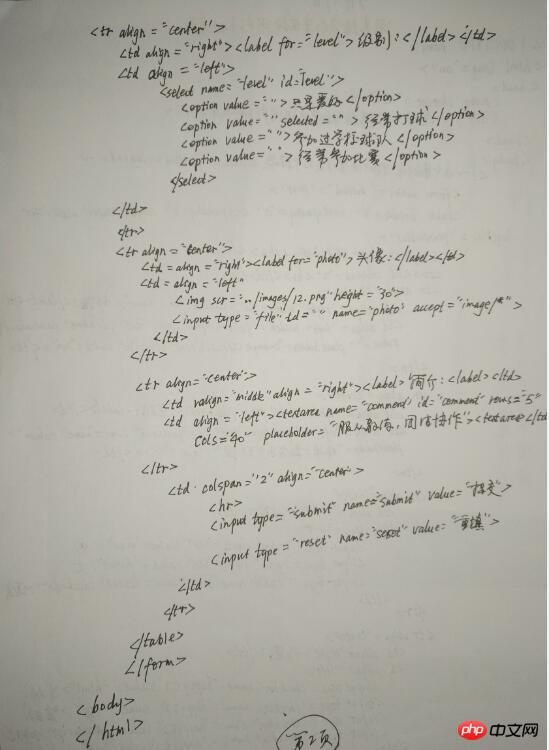 <tr align="center">
<td align="right"><label for="level">级别:</label></td>
<td align="left">
<select name="level" id="level">
<option value="">只是爱好</option>
<option value="" selected="">经常打球</option>
<option value="">参加过学校球队</option>
<option value="">经常参加比赛</option>
</select>
</td>
</tr>
<tr align="center">
<td=align="right"><label for="photo">头像:</label></td>
<td=align="left"
<img scr="../images/12.png" height="30">
<input type="file" id="" name="photo" accept="image/*">
</td>
</tr>
<tr align="center">
<td valign="middle" align="right"><label>简介:<label></td>
<td align="left"><textarea name="comment" id="comment" rows="5"
cols="40" placeholder="服从教练,团结协作"><textarea></td
</tr>
<td colspan="2" align="center">
<hr>
<input type="submit" name="submit" value="提交">
<input type="reset" name="reset" value="重填">
</td>
</tr>
</table>
</form>
<body>
</html>
第2页
php 中文网